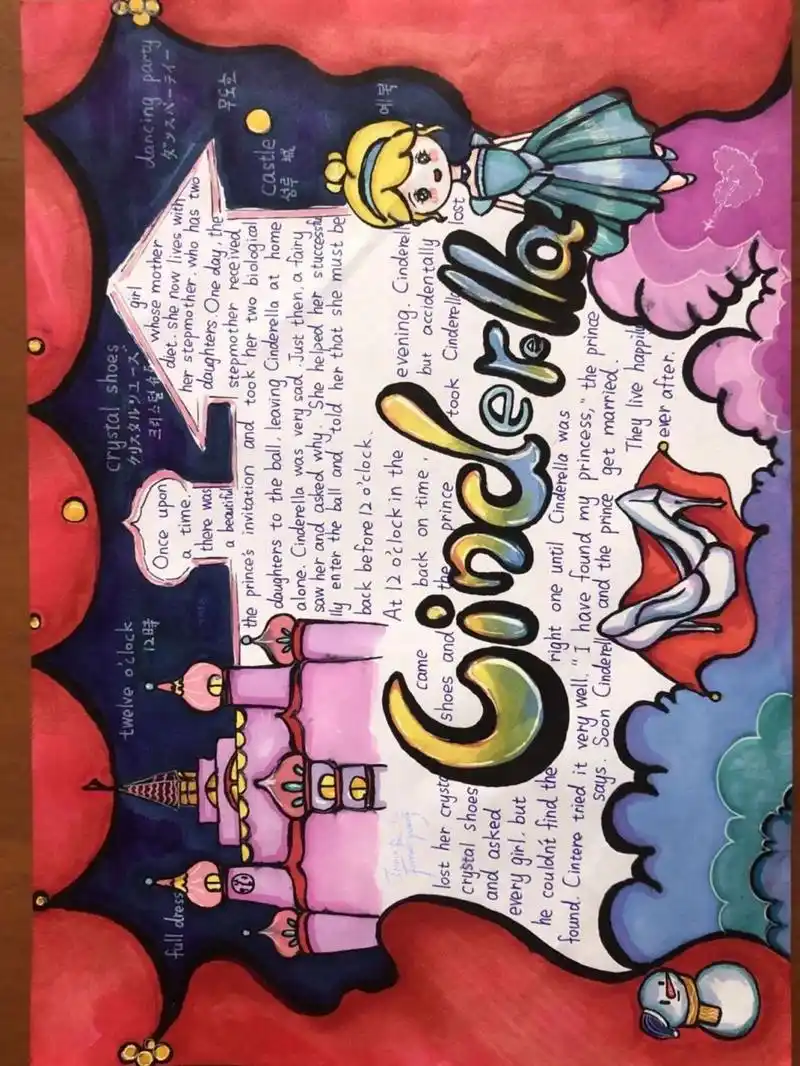 full dress
twelve o'clock
12時
crystal shoes
クリスタルシューズ
크리스털슈즈
dancing party
ダンスパーティー
무도회
castle
성루 城
예복
Once upon
a time.
there was
a beautiful
girl
whose mother
diet. she now lives with
her stepmother. who has two
daughters. One day, the
stepmother received
the prince's invitation and took her two biological
daughters to the ball, leaving Cinderella at home
alone. Cinderella was very sad. Just then, a fairy
saw her and asked why. She helped her stuccessfu
lly enter the ball and told her that she must be
back before 12 o'clock.
At 12 o'clock in the evening. Cinderell
came back on time, but accidentally lost
shoes and the prince took Cinderell
Cinderella
lost her crysta
crystal shoes
and asked
every girl, but
he couldn't find the right one until Cinderella was
found. Cintere tried it very well. "I have found my princess," the prince
says. Soon Cinderella and the prince get married.
They live happily
ever after.